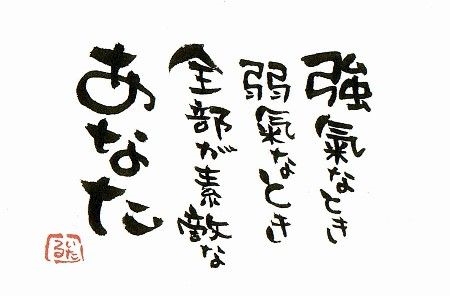 強氣なとき
弱氣なとき
全部が素敵な
あなた